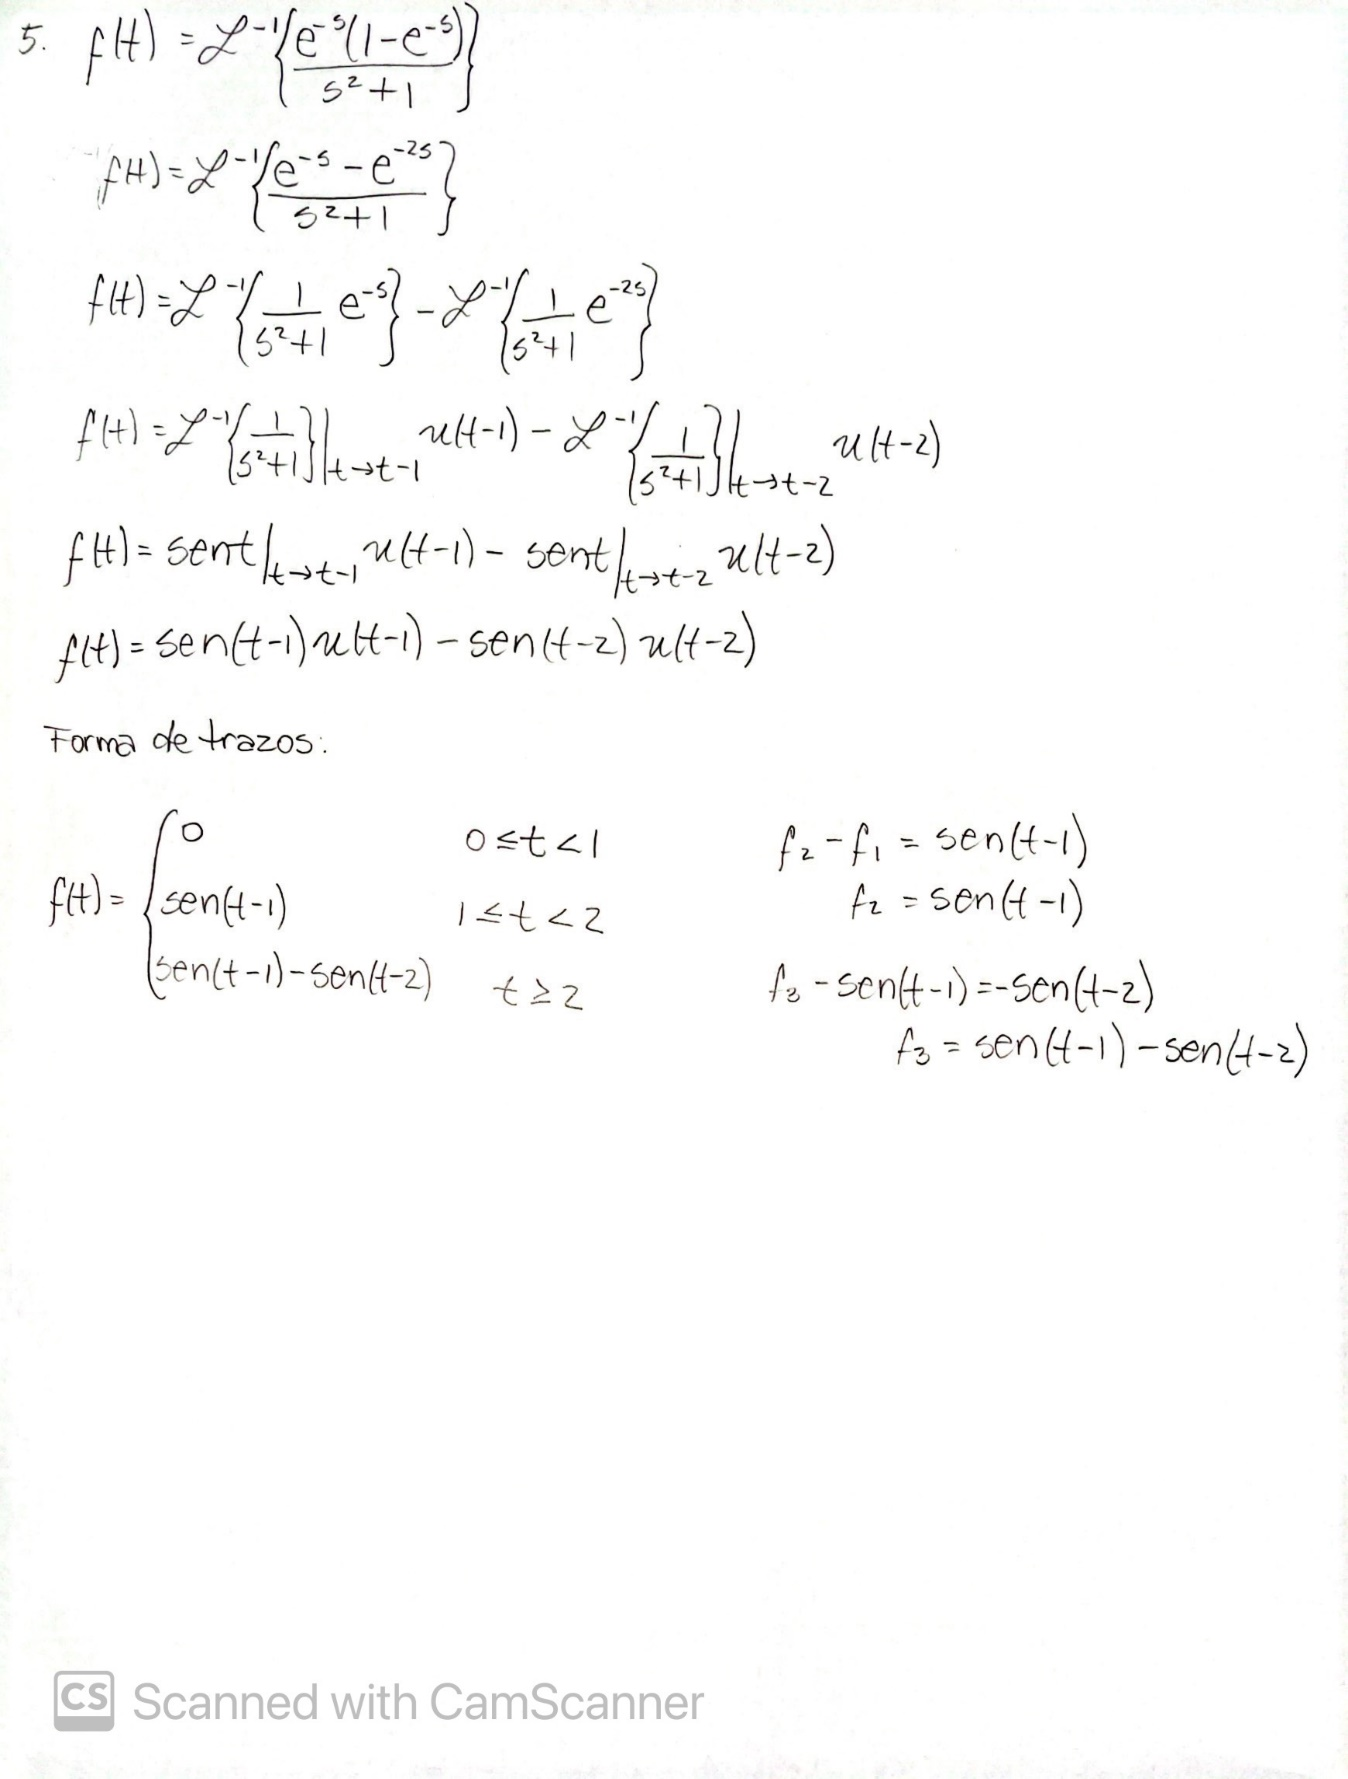 5. f(t) = ℒ⁻¹{e⁻ˢ(1-e⁻ˢ)/(s²+1)}
f(t) = ℒ⁻¹{(e⁻ˢ - e⁻²ˢ)/(s²+1)}
f(t) = ℒ⁻¹{1/(s²+1) e⁻ˢ} - ℒ⁻¹{1/(s²+1) e⁻²ˢ}
f(t) = ℒ⁻¹{1/(s²+1)}|t→t-1 u(t-1) - ℒ⁻¹{1/(s²+1)}|t→t-2 u(t-2)
f(t) = sent|t→t-1 u(t-1) - sent|t→t-2 u(t-2)
f(t) = sen(t-1)u(t-1) - sen(t-2)u(t-2)
Forma de trazos:
f(t) = { 0 0≤t<1
sen(t-1) 1≤t<2
sen(t-1)-sen(t-2) t≥2
f₂ - f₁ = sen(t-1)
f₂ = sen(t-1)
f₃ - sen(t-1) = -sen(t-2)
f₃ = sen(t-1) - sen(t-2)
CS Scanned with CamScanner